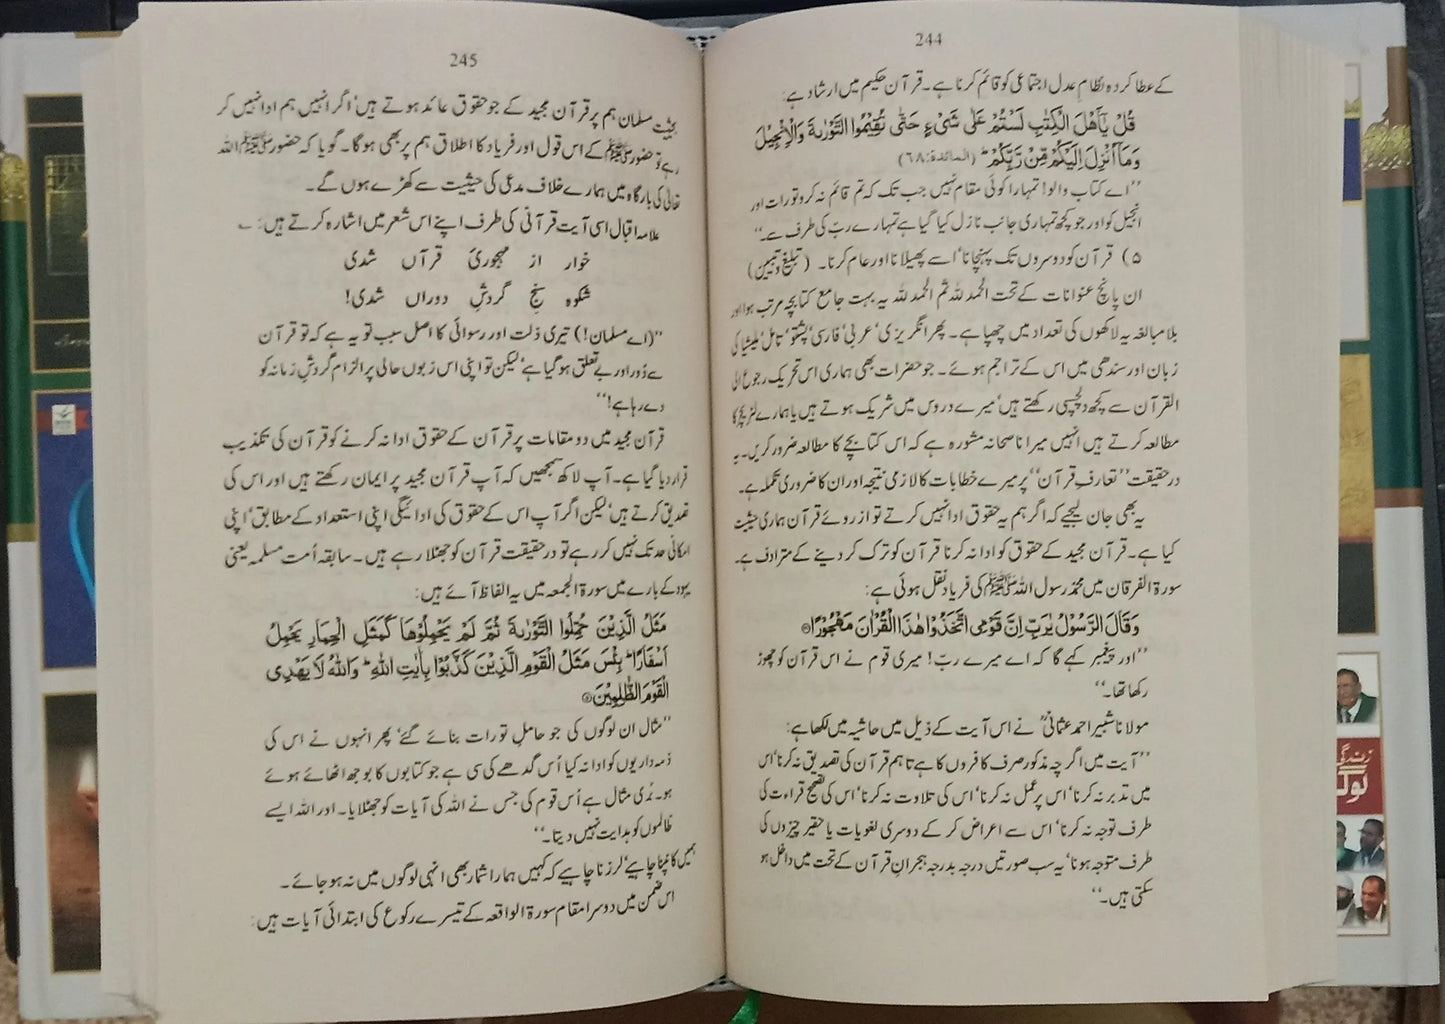 244
کے عطا کردہ نظامِ عدل اجتماعی کو قائم کرنا ہے۔ قرآن حکیم میں ارشاد ہے:
قُلْ يٰٓاَهْلَ الْكِتٰبِ لَسْتُمْ عَلٰى شَىْءٍ حَتّٰى تُقِيْمُوا التَّوْرٰىةَ وَالْاِنْجِيْلَ
وَمَآ اُنْزِلَ اِلَيْكُمْ مِّنْ رَّبِّكُمْ ؕ (المائدة:٦٨)
”اے کتاب والو! تمہارا کوئی مقام نہیں جب تک کہ تم قائم نہ کرو تورات اور
انجیل کو اور جو کچھ تمہاری جانب نازل کیا گیا ہے تمہارے ربّ کی طرف سے۔“
۵) قرآن کو دوسروں تک پہنچانا‘ اسے پھیلانا اور عام کرنا۔ (تبلیغ و تبیین)
ان پانچ عنوانات کے تحت الحمد للہ ثم الحمد للہ یہ بہت جامع کتابچہ مرتب ہوا اور
بلا مبالغہ یہ لاکھوں کی تعداد میں چھپا ہے۔ پھر انگریزی‘ عربی‘ فارسی‘ پشتو‘ تامل‘ ملیشیا کی
زبان اور سندھی میں اس کے تراجم ہوئے۔ جو حضرات بھی ہماری اس تحریک رجوع الی
القرآن سے کچھ دلچسپی رکھتے ہیں‘ میرے دروس میں شریک ہوتے ہیں یا ہمارے لٹریچر کا
مطالعہ کرتے ہیں انہیں میرا ناصحانہ مشورہ ہے کہ اس کتابچے کا مطالعہ ضرور کریں۔ یہ
درحقیقت ”تعارفِ قرآن“ پر میرے خطابات کا لازمی نتیجہ اور ان کا ضروری تکملہ ہے۔
یہ بھی جان لیجیے کہ اگر ہم یہ حقوق ادا نہیں کرتے تو از روئے قرآن ہماری حیثیت
کیا ہے۔ قرآن مجید کے حقوق کو ادا نہ کرنا قرآن کو ترک کر دینے کے مترادف ہے۔
سورۃ الفرقان میں محمد رسول اللہ ﷺ کی فریاد نقل ہوئی ہے:
وَقَالَ الرَّسُوْلُ يٰرَبِّ اِنَّ قَوْمِى اتَّخَذُوْا هٰذَا الْقُرْاٰنَ مَهْجُوْرًا
”اور پیغمبر کہے گا کہ اے میرے ربّ! میری قوم نے اس قرآن کو چھوڑ
رکھا تھا۔“
مولانا شبیر احمد عثمانیؒ نے اس آیت کے ذیل میں حاشیہ میں لکھا ہے:
”آیت میں اگرچہ مذکور صرف کافروں کا ہے تاہم قرآن کی تصدیق نہ کرنا‘ اس
میں تدبر نہ کرنا‘ اس پر عمل نہ کرنا‘ اس کی تلاوت نہ کرنا‘ اس کی تصحیح قراءت کی
طرف توجہ نہ کرنا‘ اس سے اعراض کر کے دوسری لغویات یا حقیر چیزوں کی
طرف متوجہ ہونا‘ یہ سب صورتیں درجہ بدرجہ ہجرانِ قرآن کے تحت میں داخل ہو
سکتی ہیں۔“
245
بحیثیت مسلمان ہم پر قرآن مجید کے جو حقوق عائد ہوتے ہیں‘ اگر انہیں ہم ادا نہیں کر
رہے تو حضور ﷺ کے اس قول اور فریاد کا اطلاق ہم پر بھی ہوگا۔ گویا کہ حضور ﷺ اللہ
تعالیٰ کی بارگاہ میں ہمارے خلاف مدعی کی حیثیت سے کھڑے ہوں گے۔
علامہ اقبال اسی آیت قرآنی کی طرف اپنے اس شعر میں اشارہ کرتے ہیں: ؎
خوار از مہجوریٔ قرآں شدی
شکوہ سنجِ گردشِ دوراں شدی!
”(اے مسلمان!) تیری ذلت اور رسوائی کا اصل سبب تو یہ ہے کہ تو قرآن
سے دُور اور بے تعلق ہوگیا ہے‘ لیکن تو اپنی اس زبوں حالی پر الزام گردشِ زمانہ کو
دے رہا ہے!“
قرآن مجید میں دو مقامات پر قرآن کے حقوق ادا نہ کرنے کو قرآن کی تکذیب
قرار دیا گیا ہے۔ آپ لاکھ سمجھیں کہ آپ قرآن مجید پر ایمان رکھتے ہیں اور اس کی
تصدیق کرتے ہیں‘ لیکن اگر آپ اس کے حقوق کی ادائیگی اپنی استعداد کے مطابق‘ اپنی
امکانی حد تک نہیں کر رہے تو درحقیقت قرآن کو جھٹلا رہے ہیں۔ سابقہ اُمت مسلمہ یعنی
یہود کے بارے میں سورۃ الجمعہ میں یہ الفاظ آئے ہیں:
مَثَلُ الَّذِيْنَ حُمِّلُوا التَّوْرٰىةَ ثُمَّ لَمْ يَحْمِلُوْهَا كَمَثَلِ الْحِمَارِ يَحْمِلُ
اَسْفَارًا ؕ بِئْسَ مَثَلُ الْقَوْمِ الَّذِيْنَ كَذَّبُوْا بِاٰيٰتِ اللّٰهِ ؕ وَاللّٰهُ لَا يَهْدِى
الْقَوْمَ الظّٰلِمِيْنَ
”مثال ان لوگوں کی جو حاملِ تورات بنائے گئے‘ پھر انہوں نے اس کی
ذمہ داریوں کو ادا نہ کیا‘ اُس گدھے کی سی ہے جو کتابوں کا بوجھ اٹھائے ہوئے
ہو۔ بُری مثال ہے اُس قوم کی جس نے اللہ کی آیات کو جھٹلایا۔ اور اللہ ایسے
ظالموں کو ہدایت نہیں دیتا۔“
ہمیں کانپنا چاہیے‘ لرزنا چاہیے کہ کہیں ہمارا شمار بھی انہی لوگوں میں نہ ہو جائے۔
اس ضمن میں دوسرا مقام سورۃ الواقعہ کے تیسرے رکوع کی ابتدائی آیات ہیں: